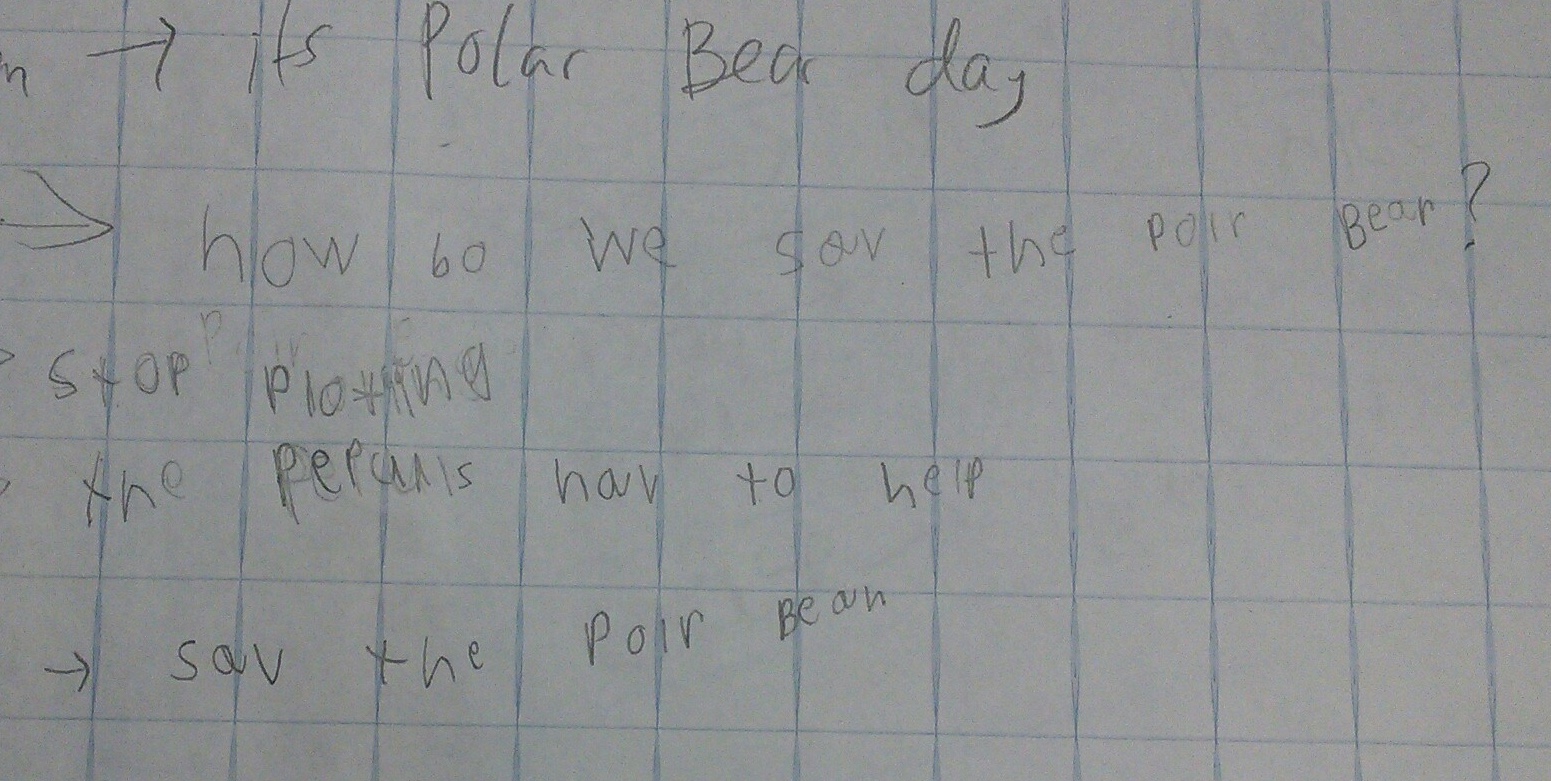 n → its Polar Bear day
→ how bo we sav the polr Bear?
stop plotiing
the pepauls hav to help
→ sav the Polr Bear